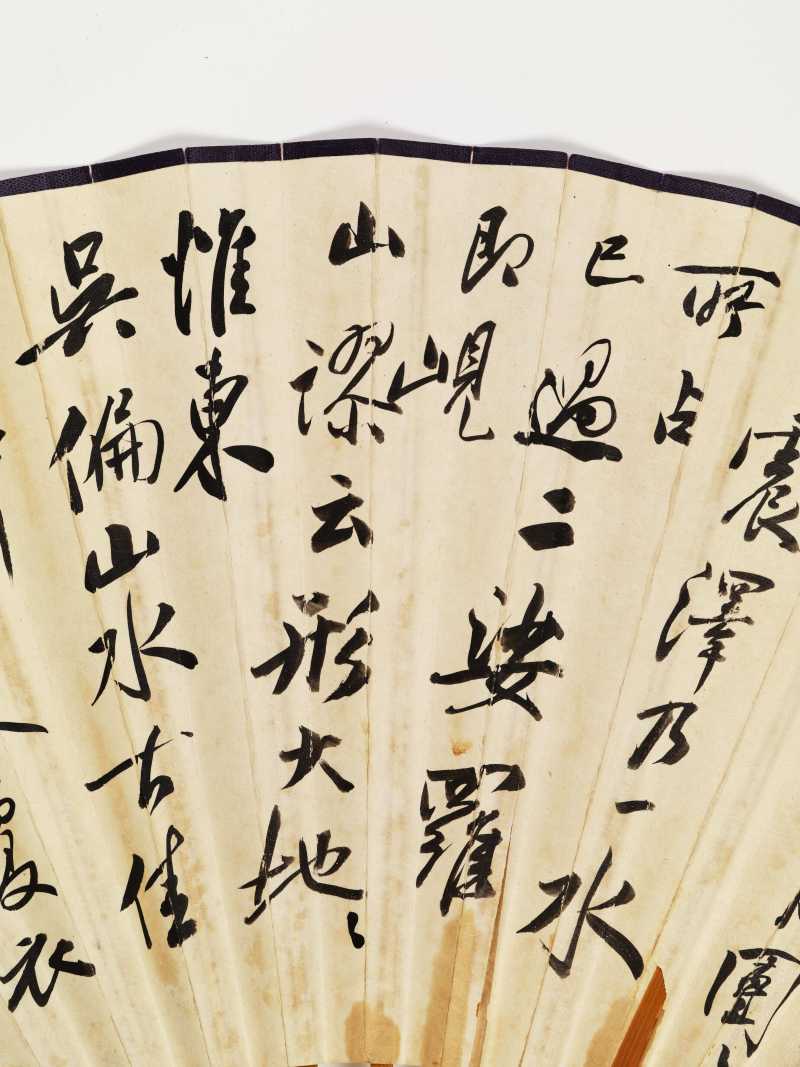 圖
震澤乃一水
所占
已過二婁羅
即峴
山謬云形大地〻
惟東
吳偏山水古佳
衣